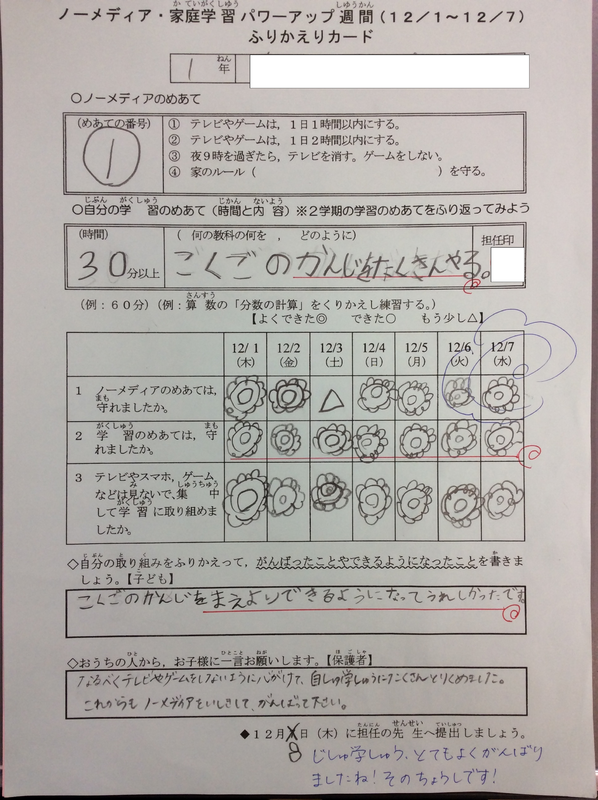 ノーメディア・家庭学習パワーアップ週間(12/1~12/7)
ふりかえりカード
1年
○ノーメディアのめあて
(めあての番号)
1
① テレビやゲームは,1日1時間以内にする。
② テレビやゲームは,1日2時間以内にする。
③ 夜9時を過ぎたら,テレビを消す。ゲームをしない。
④ 家のルール( )を守る。
○自分の学習のめあて(時間と内容)※2学期の学習のめあてをふり返ってみよう
(時間) ( 何の教科の何を , どのように) 担任印
30分以上 こくごのかんじをたくさんやる。
(例:60分)(例:算数の「分数の計算」をくりかえし練習する。)
【よくできた◎ できた○ もう少し△】
12/1(木) 12/2(金) 12/3(土) 12/4(日) 12/5(月) 12/6(火) 12/7(水)
1 ノーメディアのめあては,
守れましたか。 △
2 学習のめあては,守
れましたか。
3 テレビやスマホ,ゲーム
などは見ないで,集中
して学習に取り組めま
したか。
◇自分の取り組みをふりかえって,がんばったことやできるようになったことを書きま
しょう。【子ども】
こくごのかんじをまえよりできるようになってうれしかったです
◇おうちの人から,お子様に一言お願いします。【保護者】
なるべくテレビやゲームをしないように心がけて、自しゅ学しゅうにたくさんとりくめました。
これからも ノーメディアをいしきして、がんばって下さい。
◆12月8日(木)に担任の先生へ提出しましょう。
じしゅ学しゅう、とてもよくがんばり
ましたね!そのちょうしです!